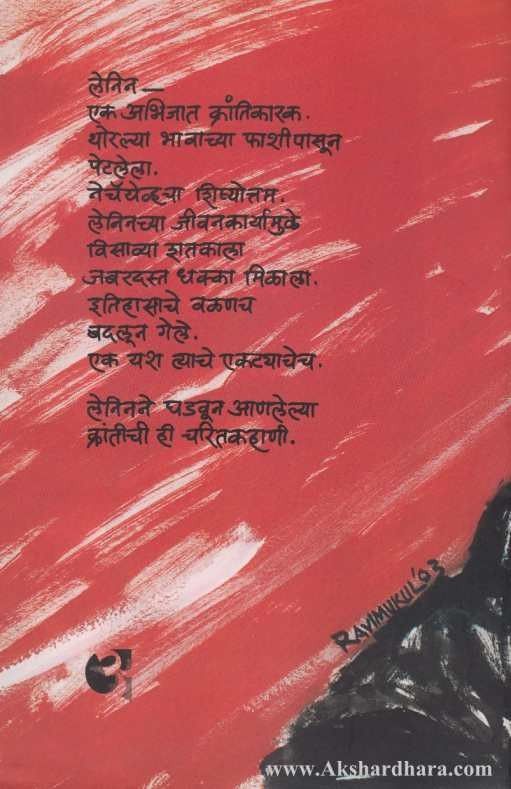 लेनिन —
एक अभिजात क्रांतिकारक.
थोरल्या भावाच्या फाशीपासून
पेटलेला.
नेचॅयेव्हचा शिष्योत्तम.
लेनिनच्या जीवनकार्यामुळे
विसाव्या शतकाला
जबरदस्त धक्का मिळाला.
इतिहासाचे वळणच
बदलून गेले.
एक यश त्याचे एकट्याचेच.

लेनिनने घडवून आणलेल्या
क्रांतीची ही चरितकहाणी.
RAVIMUKUL '93
www.Akshardhara.com